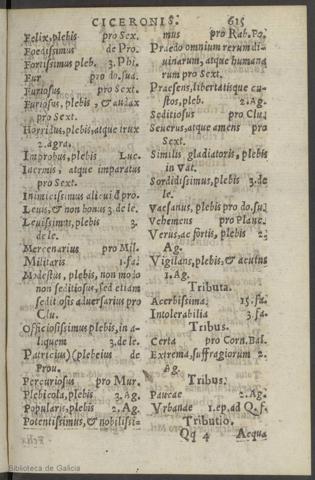 CICERONIS. 615
Felix, plebis pro Sex.
Foedissimus de Pro.
Fortissimus pleb. 3. Phi.
Fur pro do. sua.
Furiosus pro Sext.
Furiosus, plebis, & audax
pro Sext.
Horridus, plebis, atque trux
2. agra.
Improbus, plebis Luc.
Inermis, atque imparatus
pro Sext.
Inimicissimus alicui pro.
Leuis, & non bonus 3. de le.
Leuissimus, plebis 3.
de le.
Mercenarius pro Mil.
Militaris 1. fa.
Modestus, plebis, non modo
non seditiosus, sed etiam
seditiosis aduersarius pro
Clu.
Officiosissimus plebis, in a-
liquem 3. de le.
Patricius) (plebeius de
Prou.
Percuriosus pro Mur.
Plebicola, plebis 3. Ag.
Popularis, plebis 2. Ag.
Potentissimus, & nobilissi-
mus pro Rab. Po.
Praedo omnium rerum di-
uinarum, atque humana
rum pro Sext.
Praesens, libertatisque cu-
stos, pleb. 2. Ag.
Seditiosus pro Clu.
Seuerus, atque amens pro
Sext.
Similis gladiatoris, plebis
in Vat.
Sordidissimus, plebis 3. de
le.
Vaesanus, plebis pro do. su.
Vehemens pro Planc.
Verus, ac fortis, plebis 2.
Ag.
Vigilans, plebis, & acutus
1. Ag.
Tributa.
Acerbissima. 15. fa.
Intolerabilia 3. fa.
Tribus.
Certa pro Corn. Bal.
Extrema, suffragiorum 2.
Ag.
Tribus.
Paucae 2. Ag.
Vrbanae 1. ep. ad Q. f.
Tributio.
Qq 4 Aequa
Biblioteca de Galicia